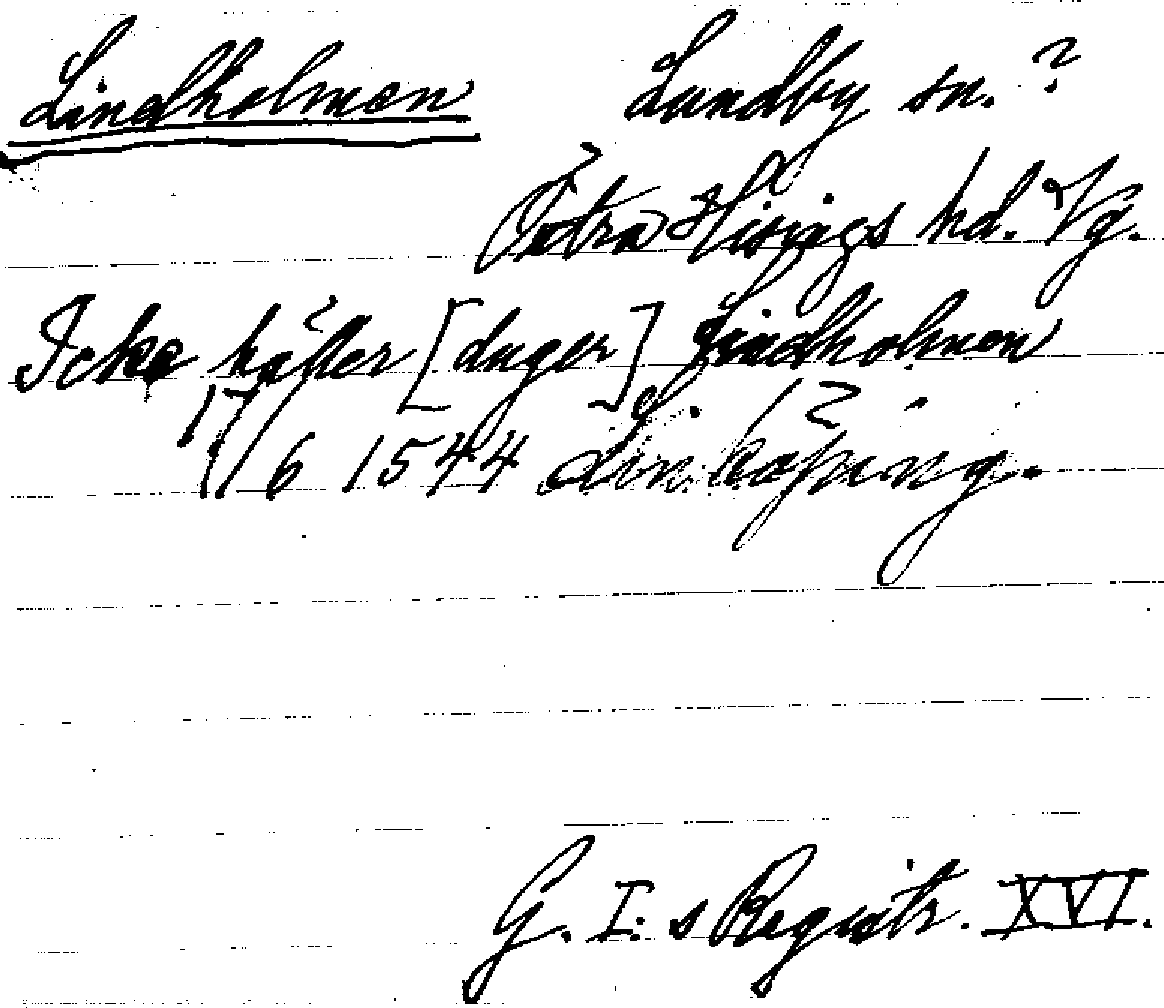 Lindholmen Lundby sn. ?
Östra Hisings hd. Vg.
Icke håller [duger] Lindholmen
17/6 1544 Linköping.
G. I:s Registr. XVI.